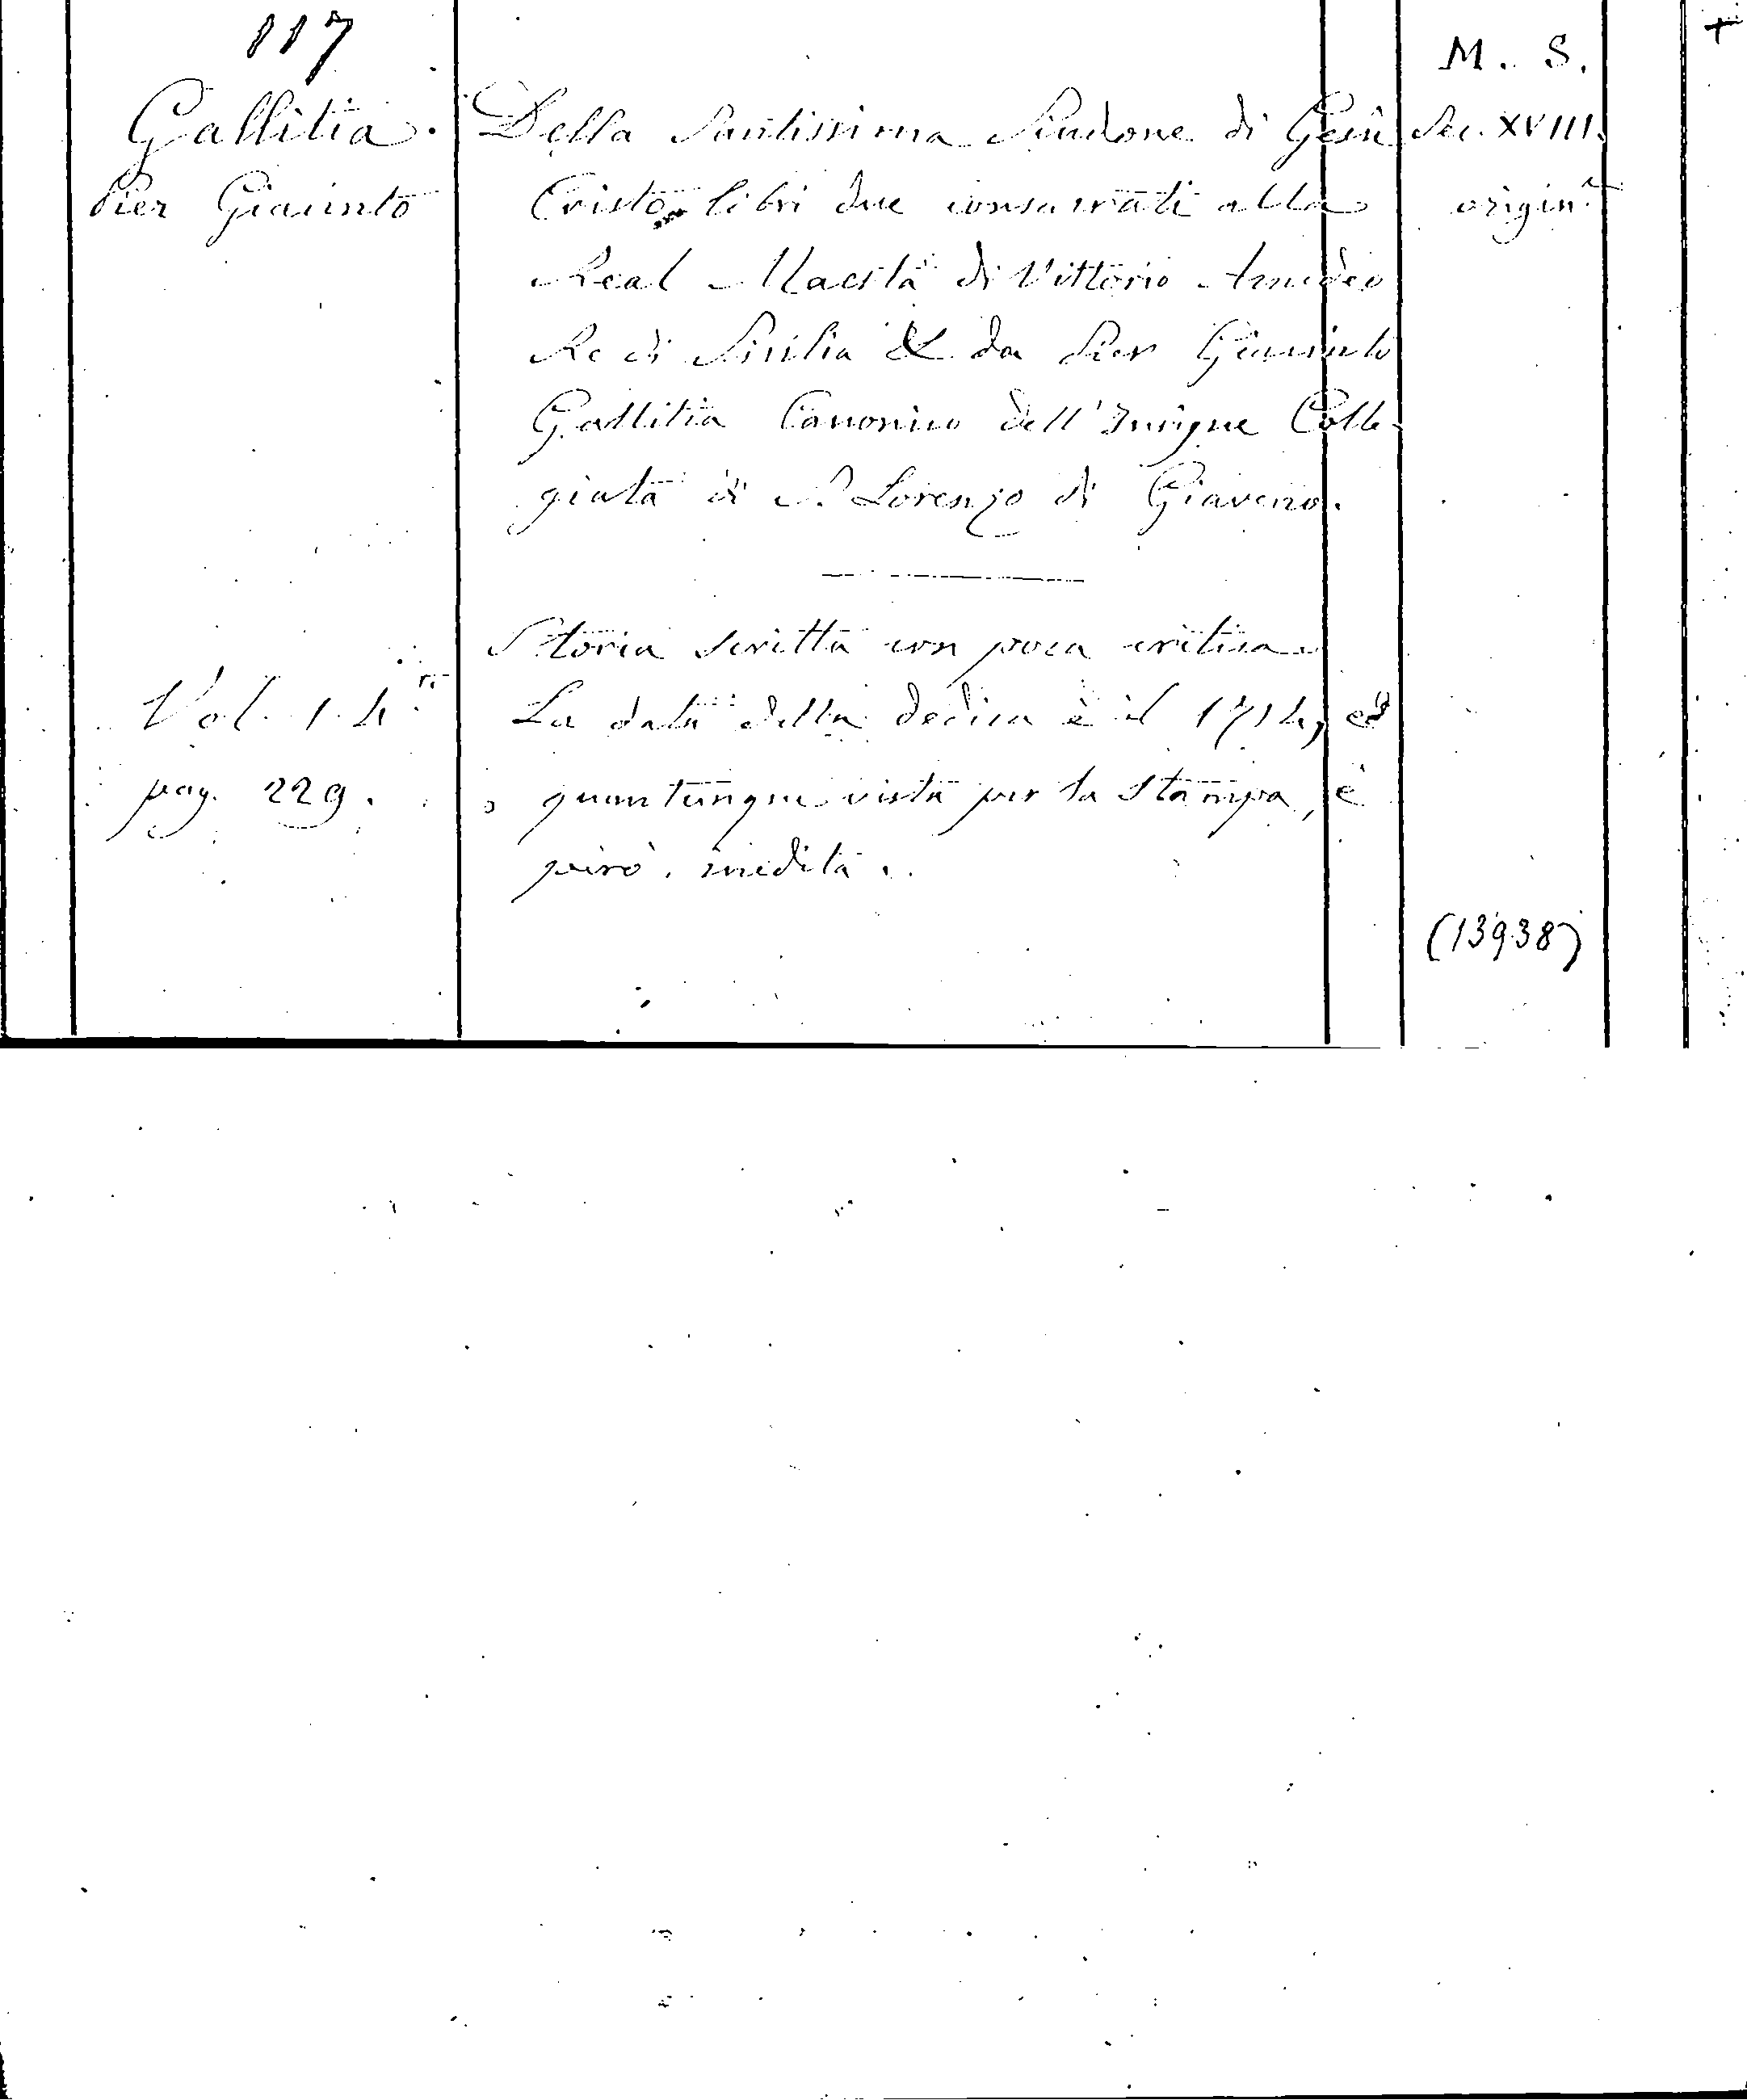 117
Gallitia.
Pier Giacinto
Vol. 1. 4.º
pag. 229.
Della Santissima Sindone di Gesù
Cristo libri due consacrati alla
Real Maestà di Vittorio Amedeo
Re di Sicilia & da Pier Giacinto
Gallitia Canonico dell'Insigne Colle-
giata di S. Lorenzo di Giaveno.
Storia scritta con poca critica.
La data della dedica è il 1714, ed
quantunque vista per la stampa, è
però inedita.
M. S.
Sec. XVIII.
origin.e
(13938)
+